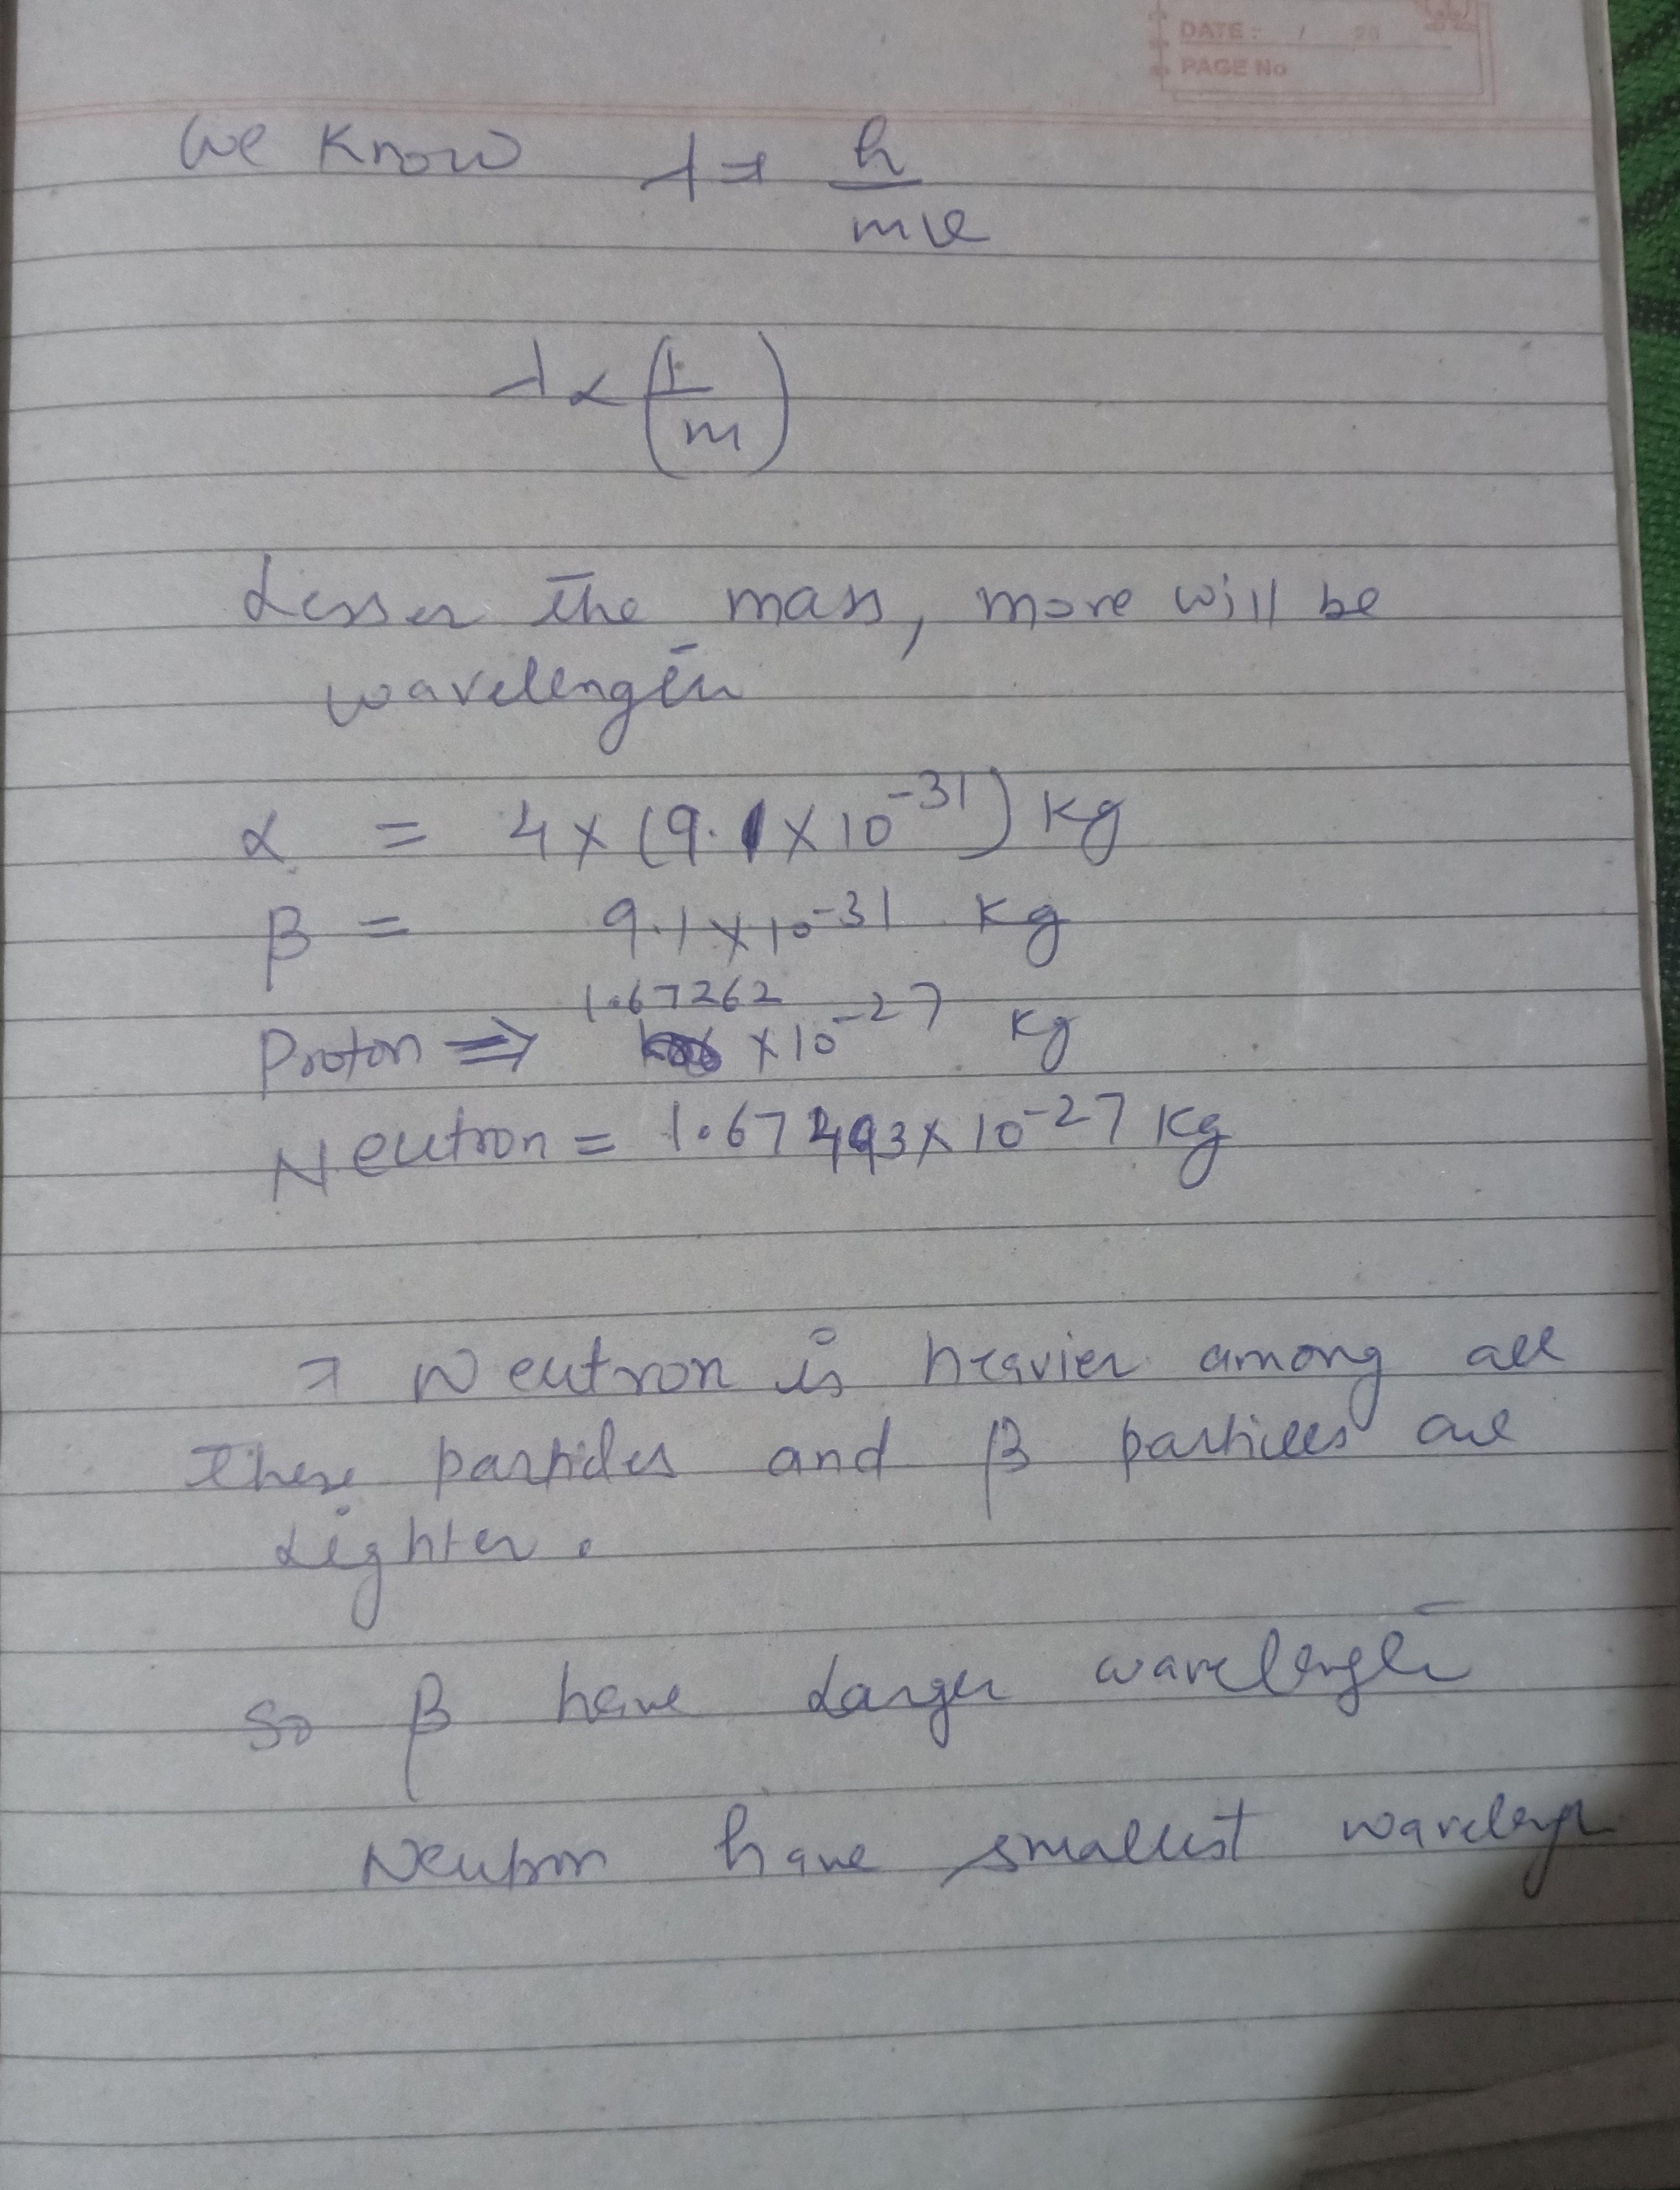 DATE: / 20
PAGE No
We know λ = h/mv
λ ∝ (1/m)
Lesser the mass, more will be
wavelength
α = 4 × (9.1 × 10⁻³¹) kg
β = 9.1 × 10⁻³¹ kg
Proton ⇒ 1.67262 × 10⁻²⁷ kg
Neutron = 1.67493 × 10⁻²⁷ kg
Neutron is heavier among all
these particles and β particles are
Lighter.
So β have Larger wavelength
Neutron have smallest wavelength